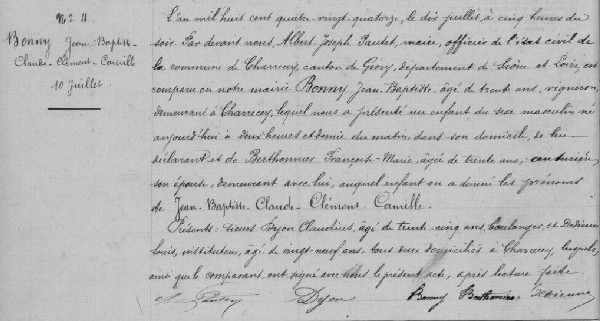 N° 4
Bonny Jean-Baptiste-
Claude-Clément-Camille
10 Juillet
L'an mil huit cent quatre vingt-quatorze, le dix juillet, à cinq heures du
soir. Par devant nous, Albert Joseph Pautet, maire, officier de l'état civil de
la commune de Charrecey, canton de Givry, département de Saône et Loire, est
comparu en notre mairie Bonny Jean-Baptiste, âgé de trente ans, vigneron,
demeurant à Charrecey, lequel nous a présenté un enfant du sexe masculin, né
aujourd'hui à deux heures et demie du matin, dans son domicile, de lui
déclarant et de Berthomier Françoise-Marie, âgée de trente ans, couturière,
son épouse, demeurant avec lui, auquel enfant on a donné les prénoms
de Jean-Baptiste-Claude-Clément-Camille.
Présents: sieurs Dyon Claudius, âgé de trente cinq ans, boulanger, et
Louis, instituteur, âgé de vingt-neuf ans, tous deux domiciliés à Charrecey, lesquels,
ainsi que le comparant, ont signé avec nous le présent acte, après lecture faite
Dyon Bonny Berthomier